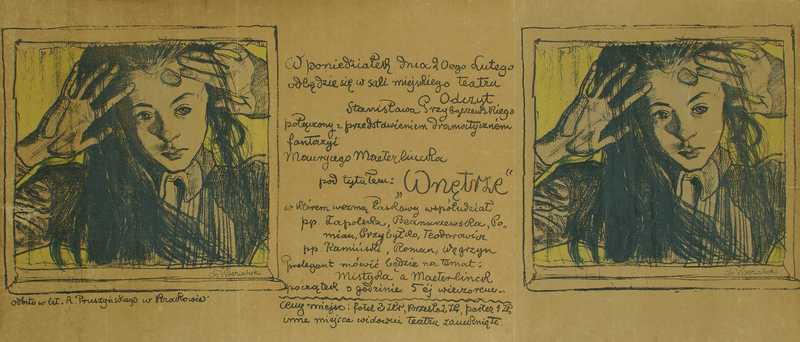 W poniedziałek dnia 20ego Lutego
odbędzie się w sali miejskiego teatru
Odczyt
Stanisława Przybyszewskiego
połączony z przedstawieniem dramatycznem
fantazyi
Maurycego Maeterlincka
pod tytułem: „Wnętrze”
w którem wezmą łaskawy współudział
pp. Zapolska, Bednarzewska, Po-
mian, Przybyłko, Teodorowicz
pp. Kamiński, Roman, Węgrzyn
Prelegent mówić będzie na temat:
Mistyka a Maeterlinck
początek o godzinie 5ej wieczorem.
Ceny miejsc: fotel 3 Złr, krzesło 2 Złr, parter 1 Zł,
inne miejsca widowni teatru zamknięte.
odbito w lit. A. Pruszyńskiego w Krakowie
St Wyspiański
St Wyspiański